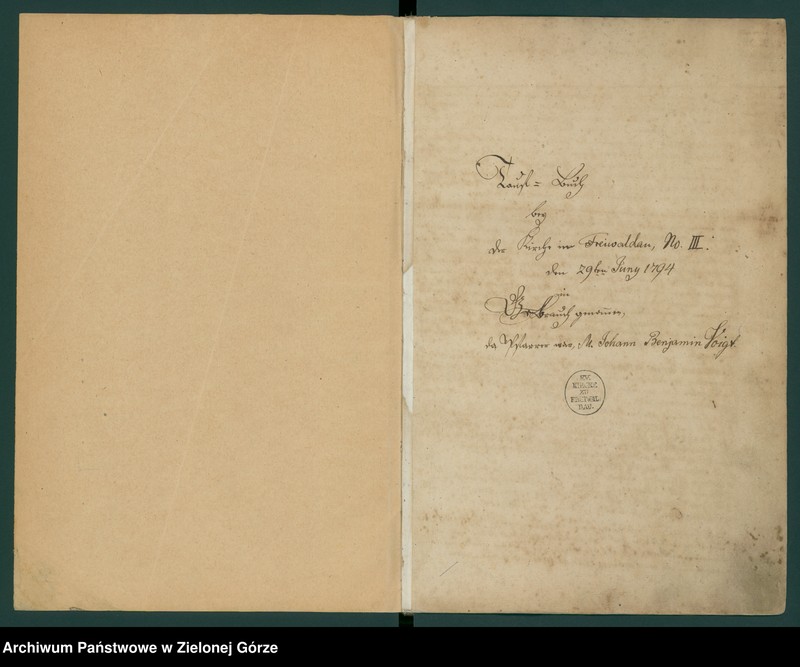 Tauf = Buch
bey
der Kirche in Freiwaldau, No. III.
den 29ten Juny 1794
im
Gebrauch genommen,
da Pfarrer war, M. Johann Benjamin Voigt.
EV.
KIRCHE
ZU
FREIWAL
DAU.
Archiwum Państwowe w Zielonej Górze